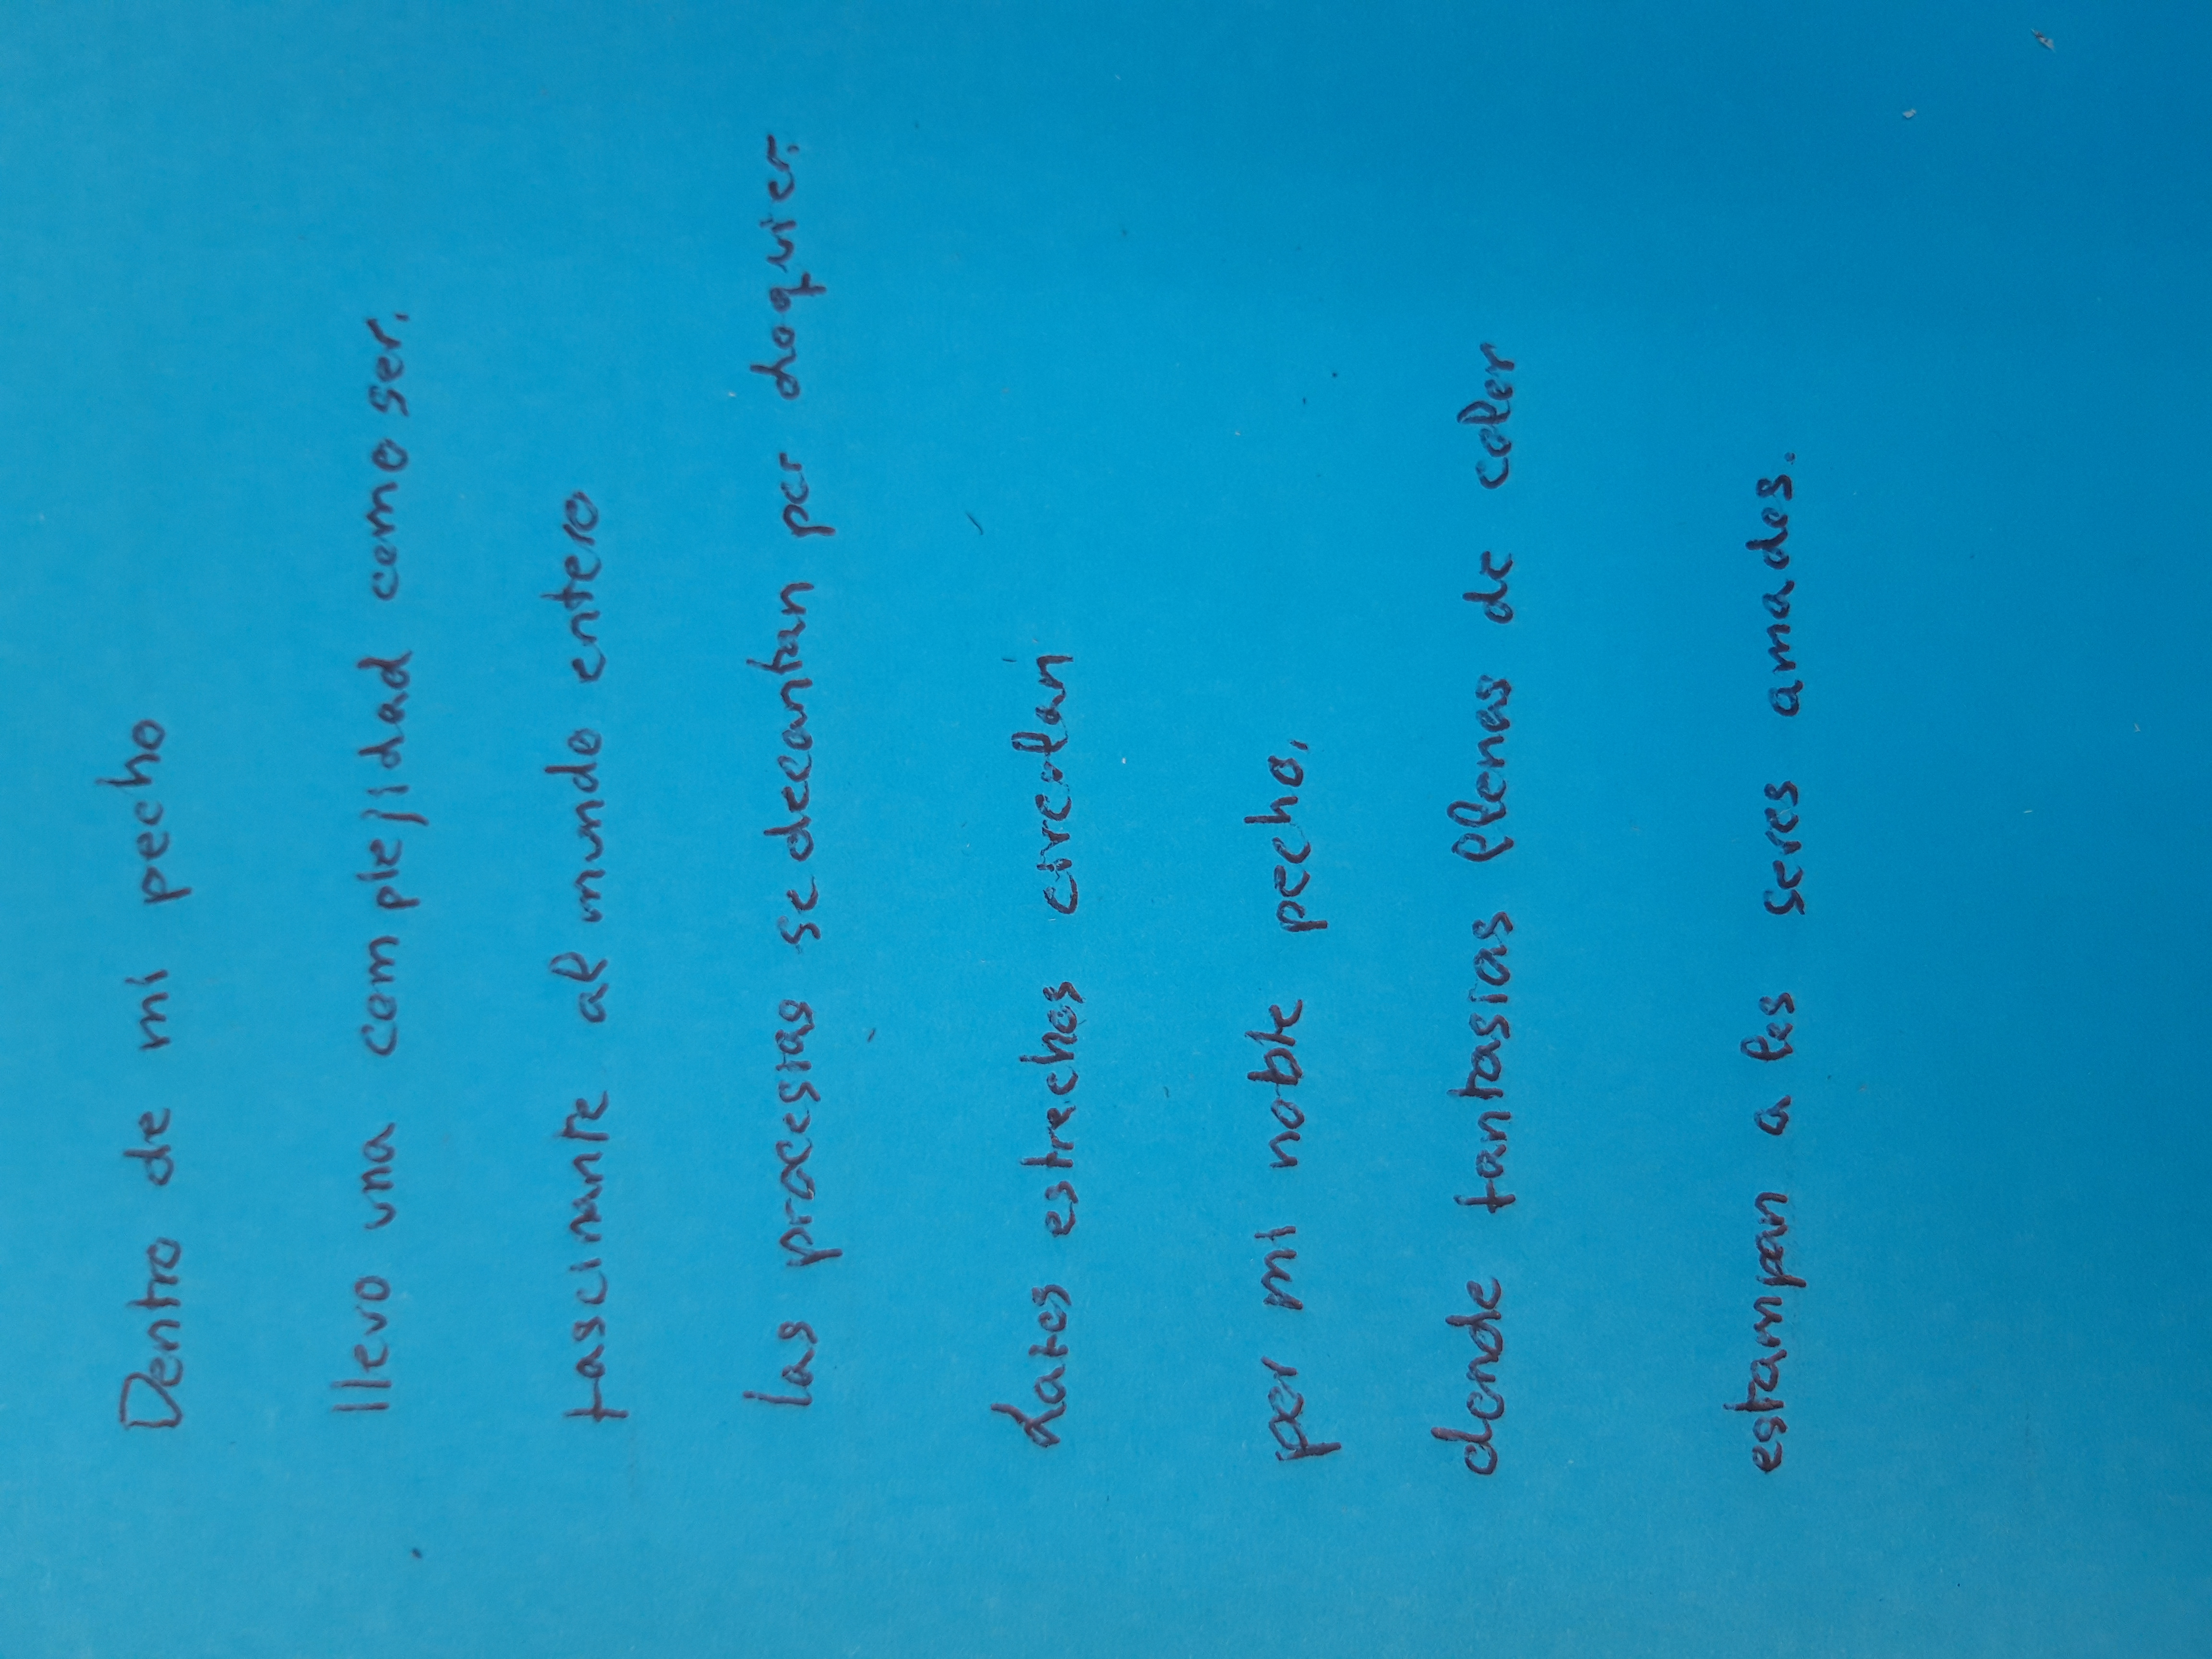 Dentro de mi pecho
llevo una complejidad como ser.
fascinante al mundo entero
las procesias se decantan por doquier.
Lazos estrechos circolan
por mi noble pecho,
donde fantasias llenas de color
estampan a los seres amados.